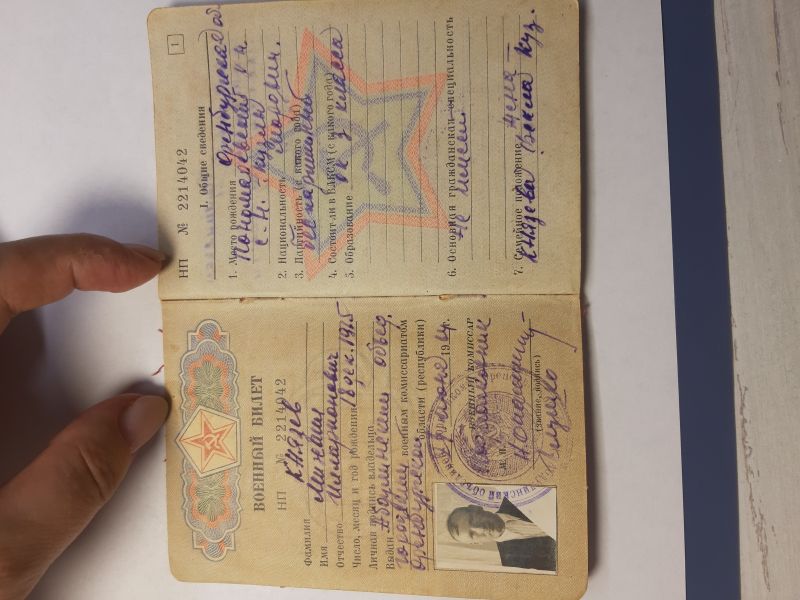 ВОЕННЫЙ БИЛЕТ
НП № 2214042
Фамилия Князев
Имя Михаил
Отчество Илларионович
Число, месяц и год рождения 18 дек. 1925
Личная подпись владельца
Выдан Абдулинским объед.
городским военным комиссариатом
Оренбургской области (республики)
июня 1964г.
ВОЕННЫЙ КОМИССАР
Подполковник
М. П.
(звание, подпись)
1
НП № 2214042
I. Общие сведения
1. Место рождения Оренбургская обл
Пономаревский р-н
с. Н.
2. Национальность мордвин.
3. Партийность (с какого года)
беспартийный
4. Состоит ли в ВЛКСМ (с какого года)
5. Образование 3 класса
6. Основная гражданская специальность
Не имеет
7. Семейное положение Жена
Князева Куз.